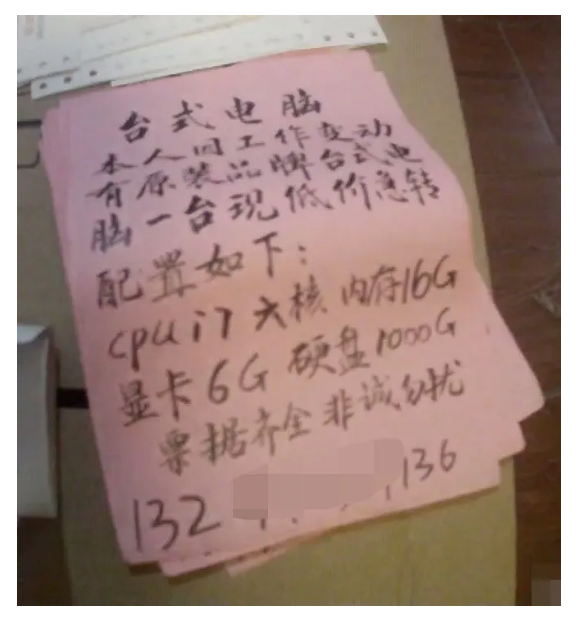 台式电脑
本人因工作变动
有原装品牌台式电
脑一台现低价急转
配置如下：
cpu i7 六核 内存16G
显卡6G 硬盘1000G
票据齐全 非诚勿扰
132 136